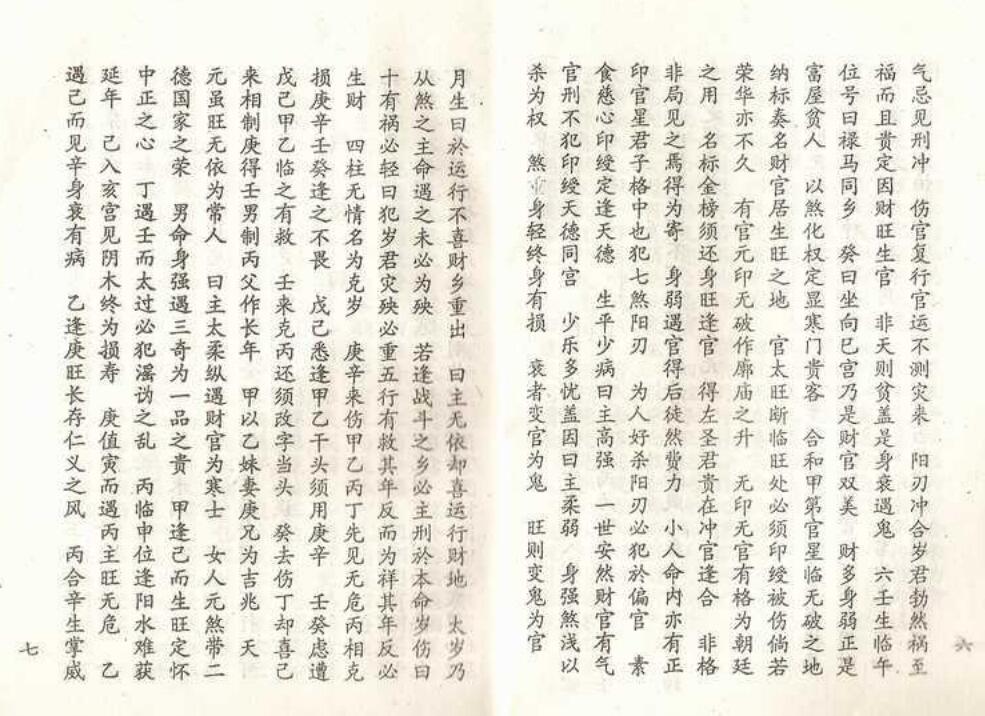 气忌见刑冲 伤官复行官运不测灾来 阳刃冲合岁君勃然祸至
福而且贵定因财旺生官 非天则贫盖是身衰遇鬼 六壬生临午
位号曰禄马同乡 癸日坐向巳宫乃是财官双美 财多身弱正是
富屋贫人 以煞化权定显寒门贵客 合和甲第官星临无破之地
纳标奏名财官居生旺之地 官太旺断临旺处必须印绶被伤倘若
荣华亦不久 有官元印无破作廊庙之升 无印无官有格为朝廷
之用 名标金榜须还身旺逢官 得左圣君贵在冲官逢合 非格
非局见之焉得为寄 身弱遇官得后徒然费力 小人命内亦有正
印官星君子格中也犯七煞阳刃 为人好杀阳刃必犯於偏官 素
食慈心印绶定逢天德 生平少病曰主高强 一世安然财官有气
官刑不犯印绶天德同宫 少乐多忧盖因曰主柔弱 身强煞浅以
杀为权 煞 身轻终身有损 衰者变官为鬼 旺则变鬼为官
六
月生曰於运行不喜财乡重出 曰主无依却喜运行财地 太岁乃
从煞之主命遇之未必为殃 若逢战斗之乡必主刑於本命岁伤曰
十有祸必轻曰犯岁君灾殃必重五行有救其年反而为祥其年反必
生财 四柱无情名为克岁 庚辛来伤甲乙丙丁先见无危丙相克
损庚辛壬癸逢之不畏 戊己悉逢甲乙干头须用庚辛 壬癸虑遭
戊己甲乙临之有救 壬来克丙还须改字当头 癸去伤丁却喜己
来相制庚得壬男制丙父作长年 甲以乙妹妻庚兄为吉兆 天
元虽旺无依为常人 曰主太柔纵遇财官为寒士 女人元煞带二
德国家之荣 男命身强遇三奇为一品之贵 甲逢己而生旺定怀
中正之心 丁遇壬而太过必犯滛讹之乱 丙临申位逢阳水难获
延年 己入亥宫见阴木终为损寿 庚值寅而遇丙主旺无危 乙
遇己而见辛身衰有病 乙逢庚旺长存仁义之风 丙合辛生掌威
七